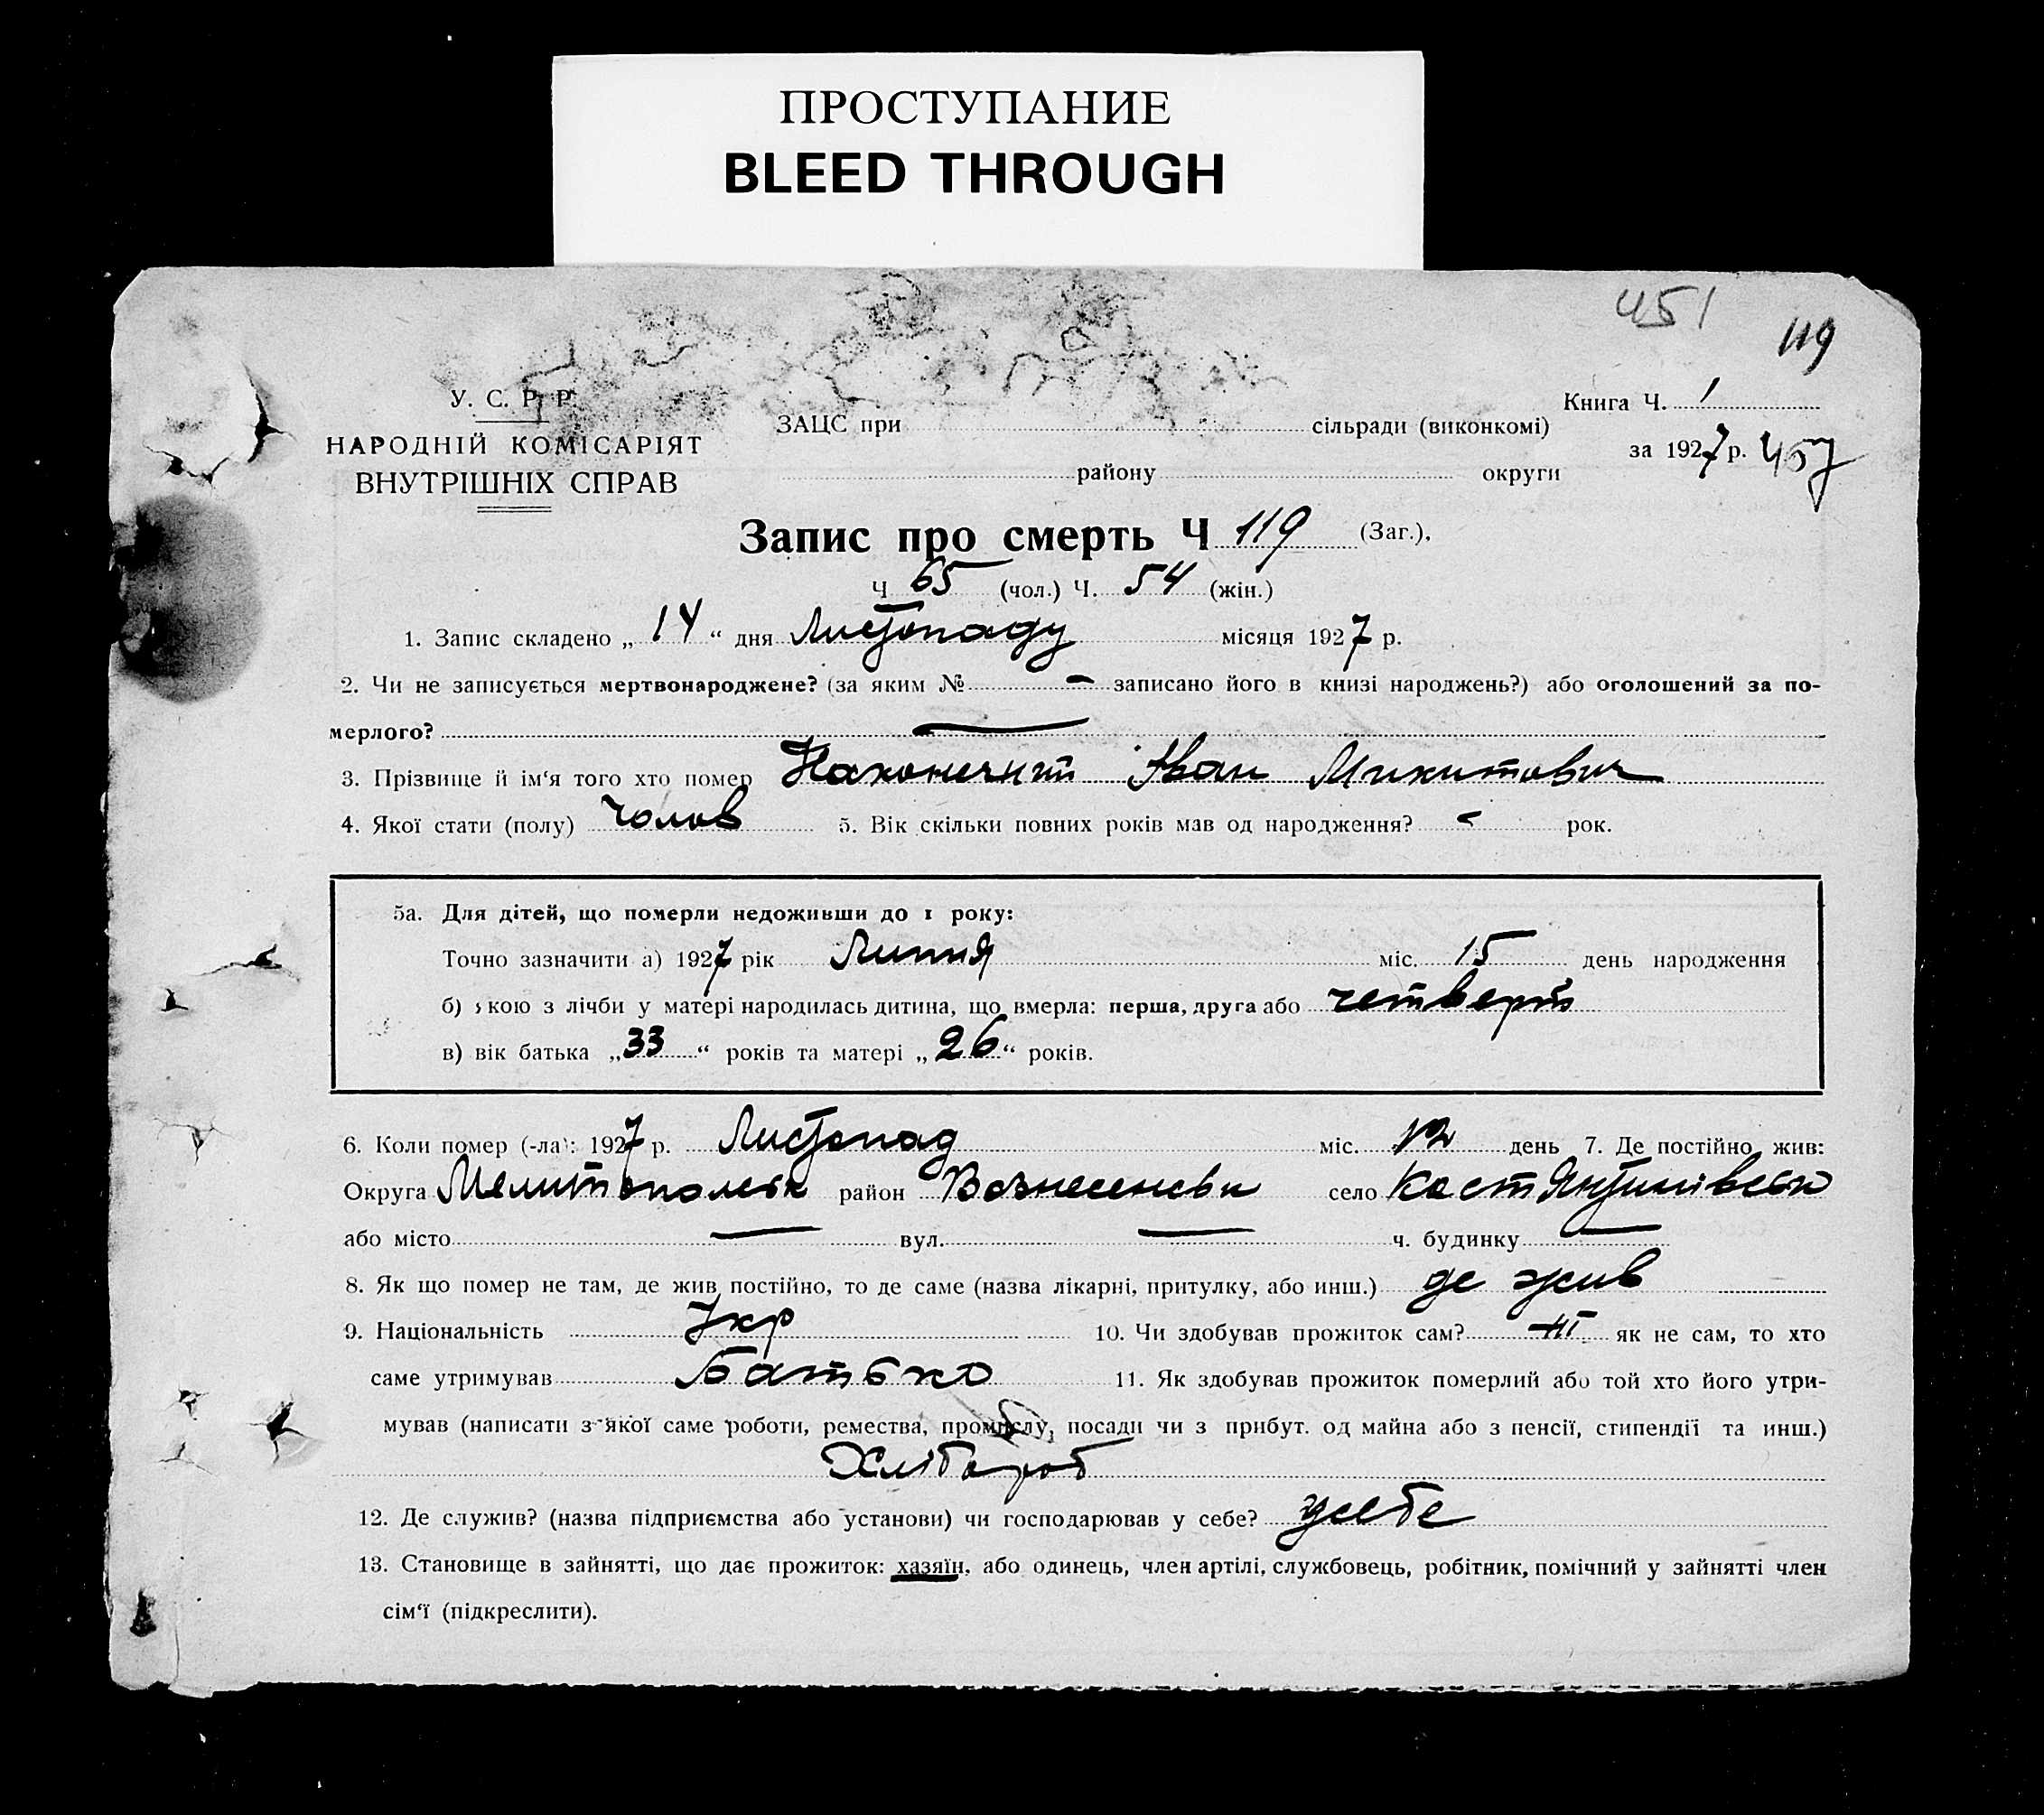 ПРОСТУПАНИЕ
BLEED THROUGH
451
119
У. С. Р. Р.
НАРОДНІЙ КОМІСАРІЯТ
ВНУТРІШНІХ СПРАВ
ЗАЦС при сільради (виконкомі)
району округи
Книга Ч. 1
за 1927 р. 457
Запис про смерть Ч 119 (Заг.).
Ч 65 (чол.) Ч. 54 (жін.)
1. Запис складено „ 14 “ дня Листопаду місяця 1927 р.
2. Чи не записується мертвонароджене? (за яким № - записано його в книзі народжень?) або оголошений за по-
мерлого? —
3. Прізвище й ім'я того хто помер Наконечний Іван Микитович
4. Якої стати (полу) Чолов 5. Вік скільки повних років мав од народження? - рок.
5а. Для дітей, що померли недоживши до 1 року:
Точно зазначити а) 1927 рік Липня міс. 15 день народження
б) якою з лічби у матері народилась дитина, що вмерла: перша, друга або четверта
в) вік батька „33“ років та матері „26“ років.
6. Коли помер (-ла): 1927 р. Листопад міс. 12 день 7. Де постійно жив:
Округа Мелитопольськ район Вознесенськ село Костянтинівськ
або місто — вул. — ч. будинку —
8. Як що помер не там, де жив постійно, то де саме (назва лікарні, притулку, або инш.) де жив
9. Національність Укр 10. Чи здобував прожиток сам? ні як не сам, то хто
саме утримував Батько 11. Як здобував прожиток померлий або той хто його утри-
мував (написати з якої саме роботи, ремества, промислу, посади чи з прибут. од майна або з пенсії, стипендії та инш.)
Хлібороб
12. Де служив? (назва підприємства або установи) чи господарював у себе? усебе
13. Становище в зайнятті, що дає прожиток: хазяїн, або одинець, член артілі, службовець, робітник, помічний у зайнятті член
сім'ї (підкреслити).